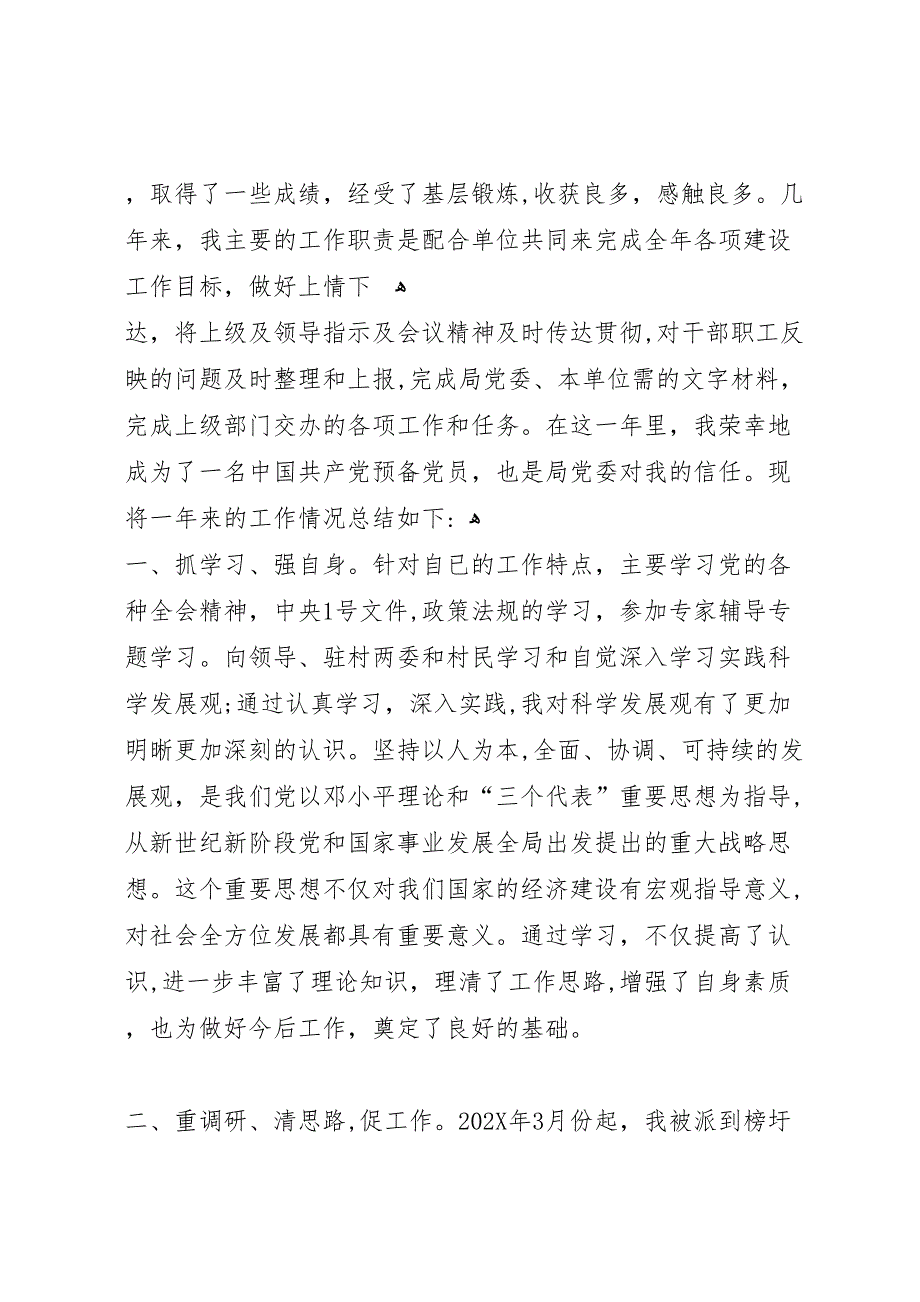 ，取得了一些成绩，经受了基层锻炼,收获良多，感触良多。几
年来，我主要的工作职责是配合单位共同来完成全年各项建设
工作目标，做好上情下 ﻫ
达，将上级及领导指示及会议精神及时传达贯彻,对干部职工反
映的问题及时整理和上报,完成局党委、本单位需的文字材料，
完成上级部门交办的各项工作和任务。在这一年里，我荣幸地
成为了一名中国共产党预备党员，也是局党委对我的信任。现
将一年来的工作情况总结如下: ﻫ
一、抓学习、强自身。针对自已的工作特点，主要学习党的各
种全会精神，中央1号文件,政策法规的学习，参加专家辅导专
题学习。向领导、驻村两委和村民学习和自觉深入学习实践科
学发展观;通过认真学习，深入实践,我对科学发展观有了更加
明晰更加深刻的认识。坚持以人为本,全面、协调、可持续的发
展观，是我们党以邓小平理论和“三个代表”重要思想为指导,
从新世纪新阶段党和国家事业发展全局出发提出的重大战略思
想。这个重要思想不仅对我们国家的经济建设有宏观指导意义,
对社会全方位发展都具有重要意义。通过学习，不仅提高了认
识,进一步丰富了理论知识，理清了工作思路,增强了自身素质
，也为做好今后工作，奠定了良好的基础。
二、重调研、清思路,促工作。202X年3月份起，我被派到榜圩